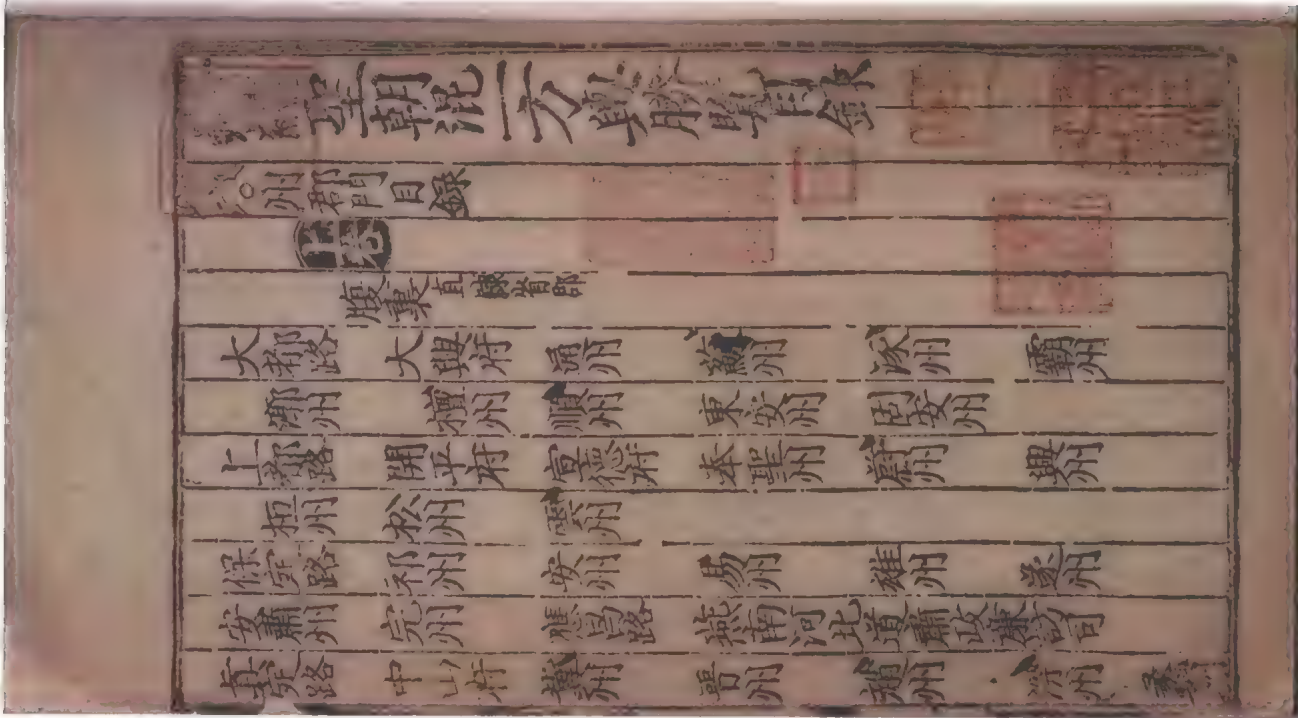 聖朝混一方輿勝覽目錄
州郡門目錄
上卷
腹裏直隸省部
大都路 大興府 通州 薊州 涿州 霸州
漷州 檀州 順州 東安州 固安州
上都路 開平府 宣德府 奉聖州 蔚州 興州
桓州 松州 雲州
保定路 祁州 安州 易州 雄州 遂州
安肅州 完州 應昌路 燕南河北道肅政廉訪司
真定路 中山府 冀州 晉州 趙州 深州 蠡州